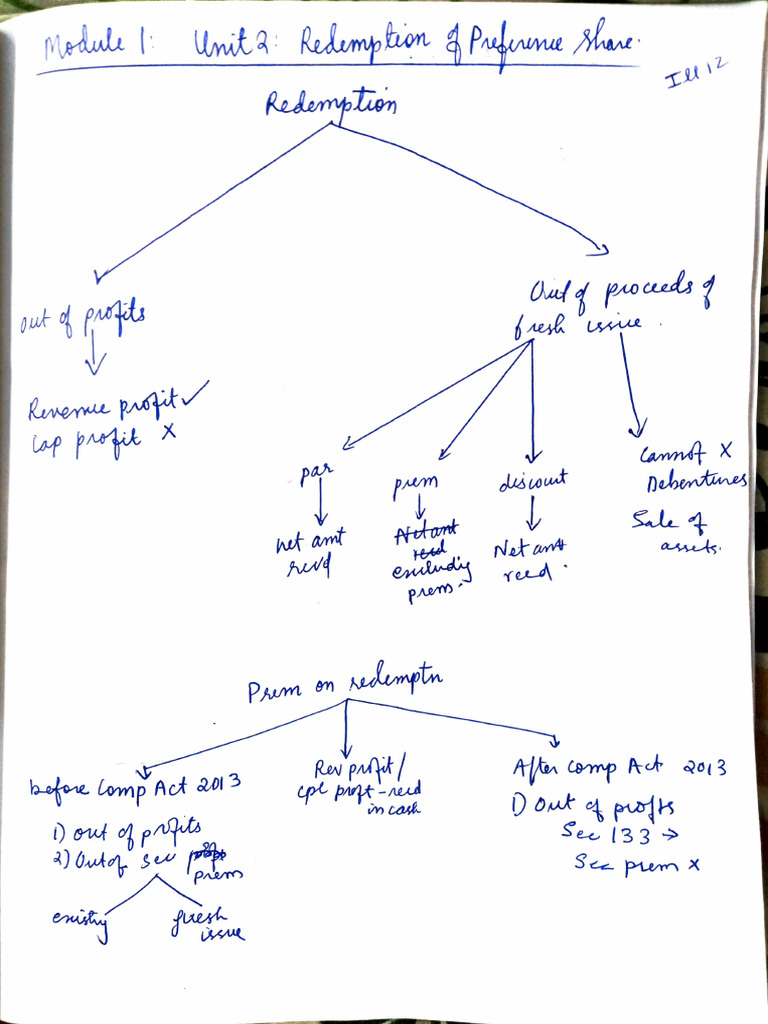 Module 1: Unit 2: Redemption of Preference Share.
Ill 12
Redemption
Out of profits
Revenue profit ✓
Cap profit X
Out of proceeds of
fresh issue.
par
net amt
recvd
prem
Net amt
recd
excluding
prem.
discount
Net amt
recd.
Cannot X
Debentures
Sale of
assets.
Prem on redemptn
before Comp Act 2013
1) out of profits
2) Out of sec
prem
existing
fresh
issue
Rev profit/
cpl proft - recd
in cash
After Comp Act 2013
1) Out of profts
Sec 133 →
Sec prem x